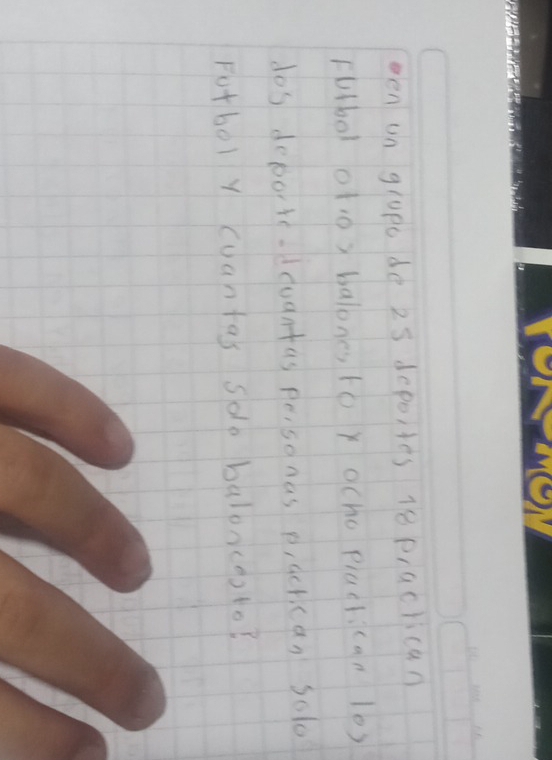 en un grupo de 25 deportes 18 practican
Futbol otros baloncesto y ocho practican los
dos deporte. ¿cuantas personas practican solo
Futbol y cuantas solo baloncesto?
POKÉMON